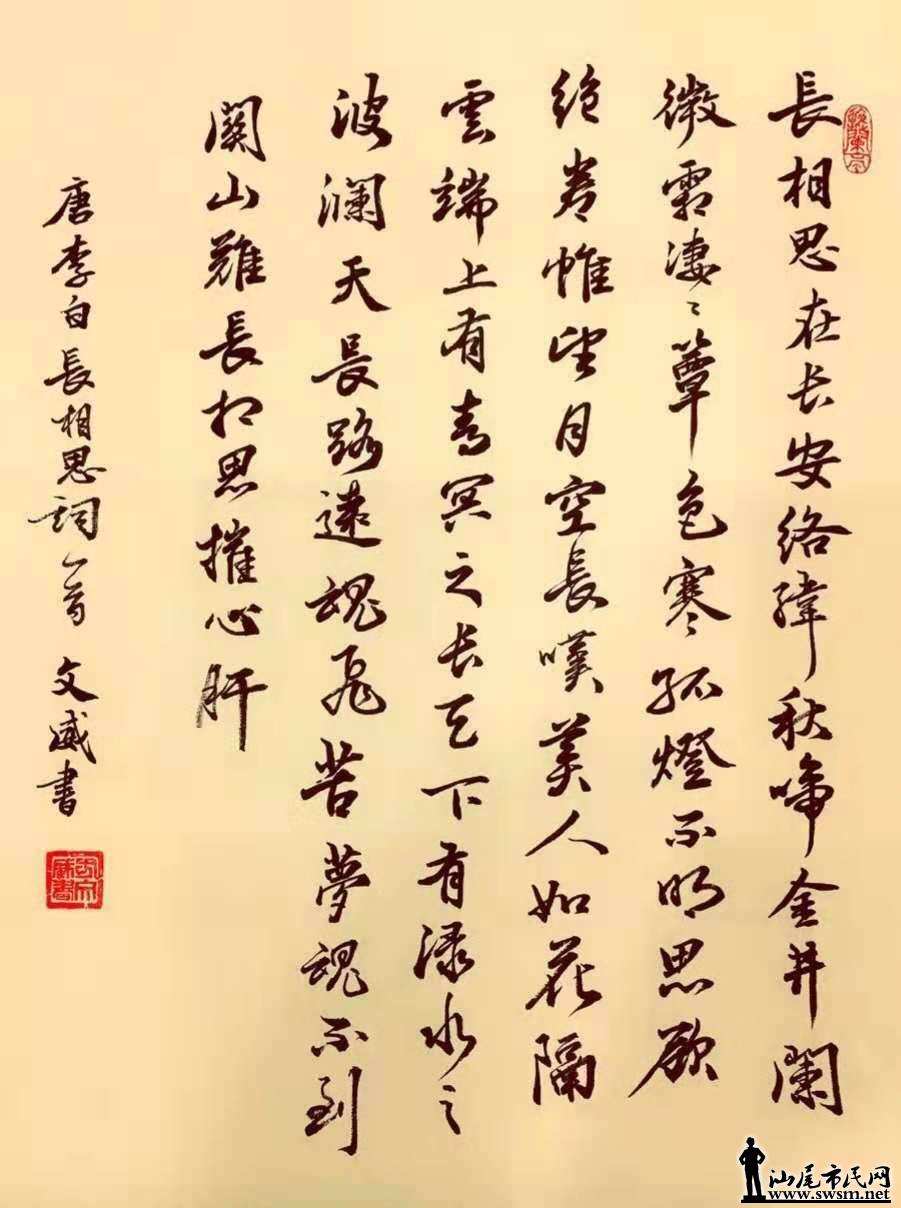 長相思在长安络緯秋啼金井闌
微霜凄〻簟色寒孤燈不明思欲
絶卷帷望月空長嘆美人如花隔
雲端上有青冥之长天下有渌水之
波瀾天長路遠魂飛苦夢魂不到
關山難長相思摧心肝
唐李白長相思詞一首 文威書
汕尾市民网
www.swsm.net